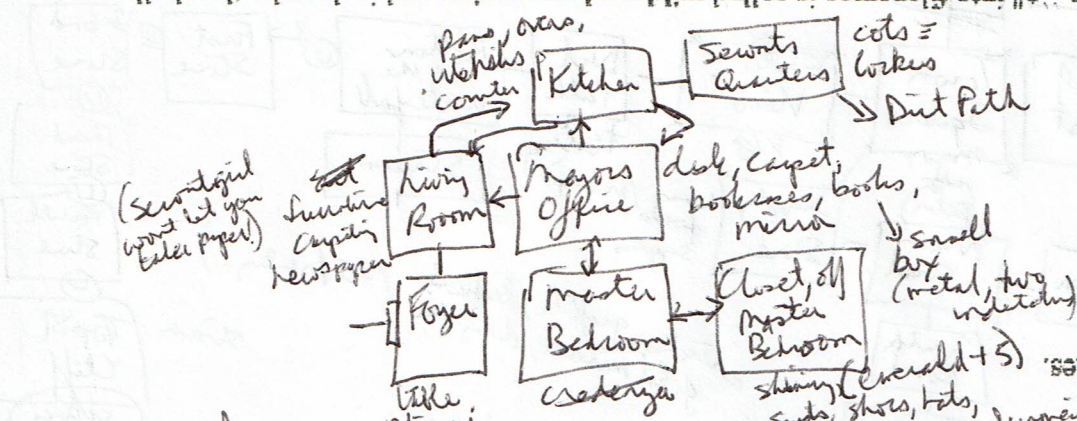 pans, ovens,
utensils,
counter
Kitchen
Servants
Quarters
cots
lockers
Dirt Path
(Servant girl
won't let you
take paper!)
furniture
carpeting
newspaper
Living
Room
Mayors
Office
desk, carpet,
bookcases, books,
mirror
small
box
(metal, two
indentations)
Foyer
table
Master
Bedroom
credenza
Closet, off
Master
Bedroom
shining (emerald + 5)
suits, shoes, hats,